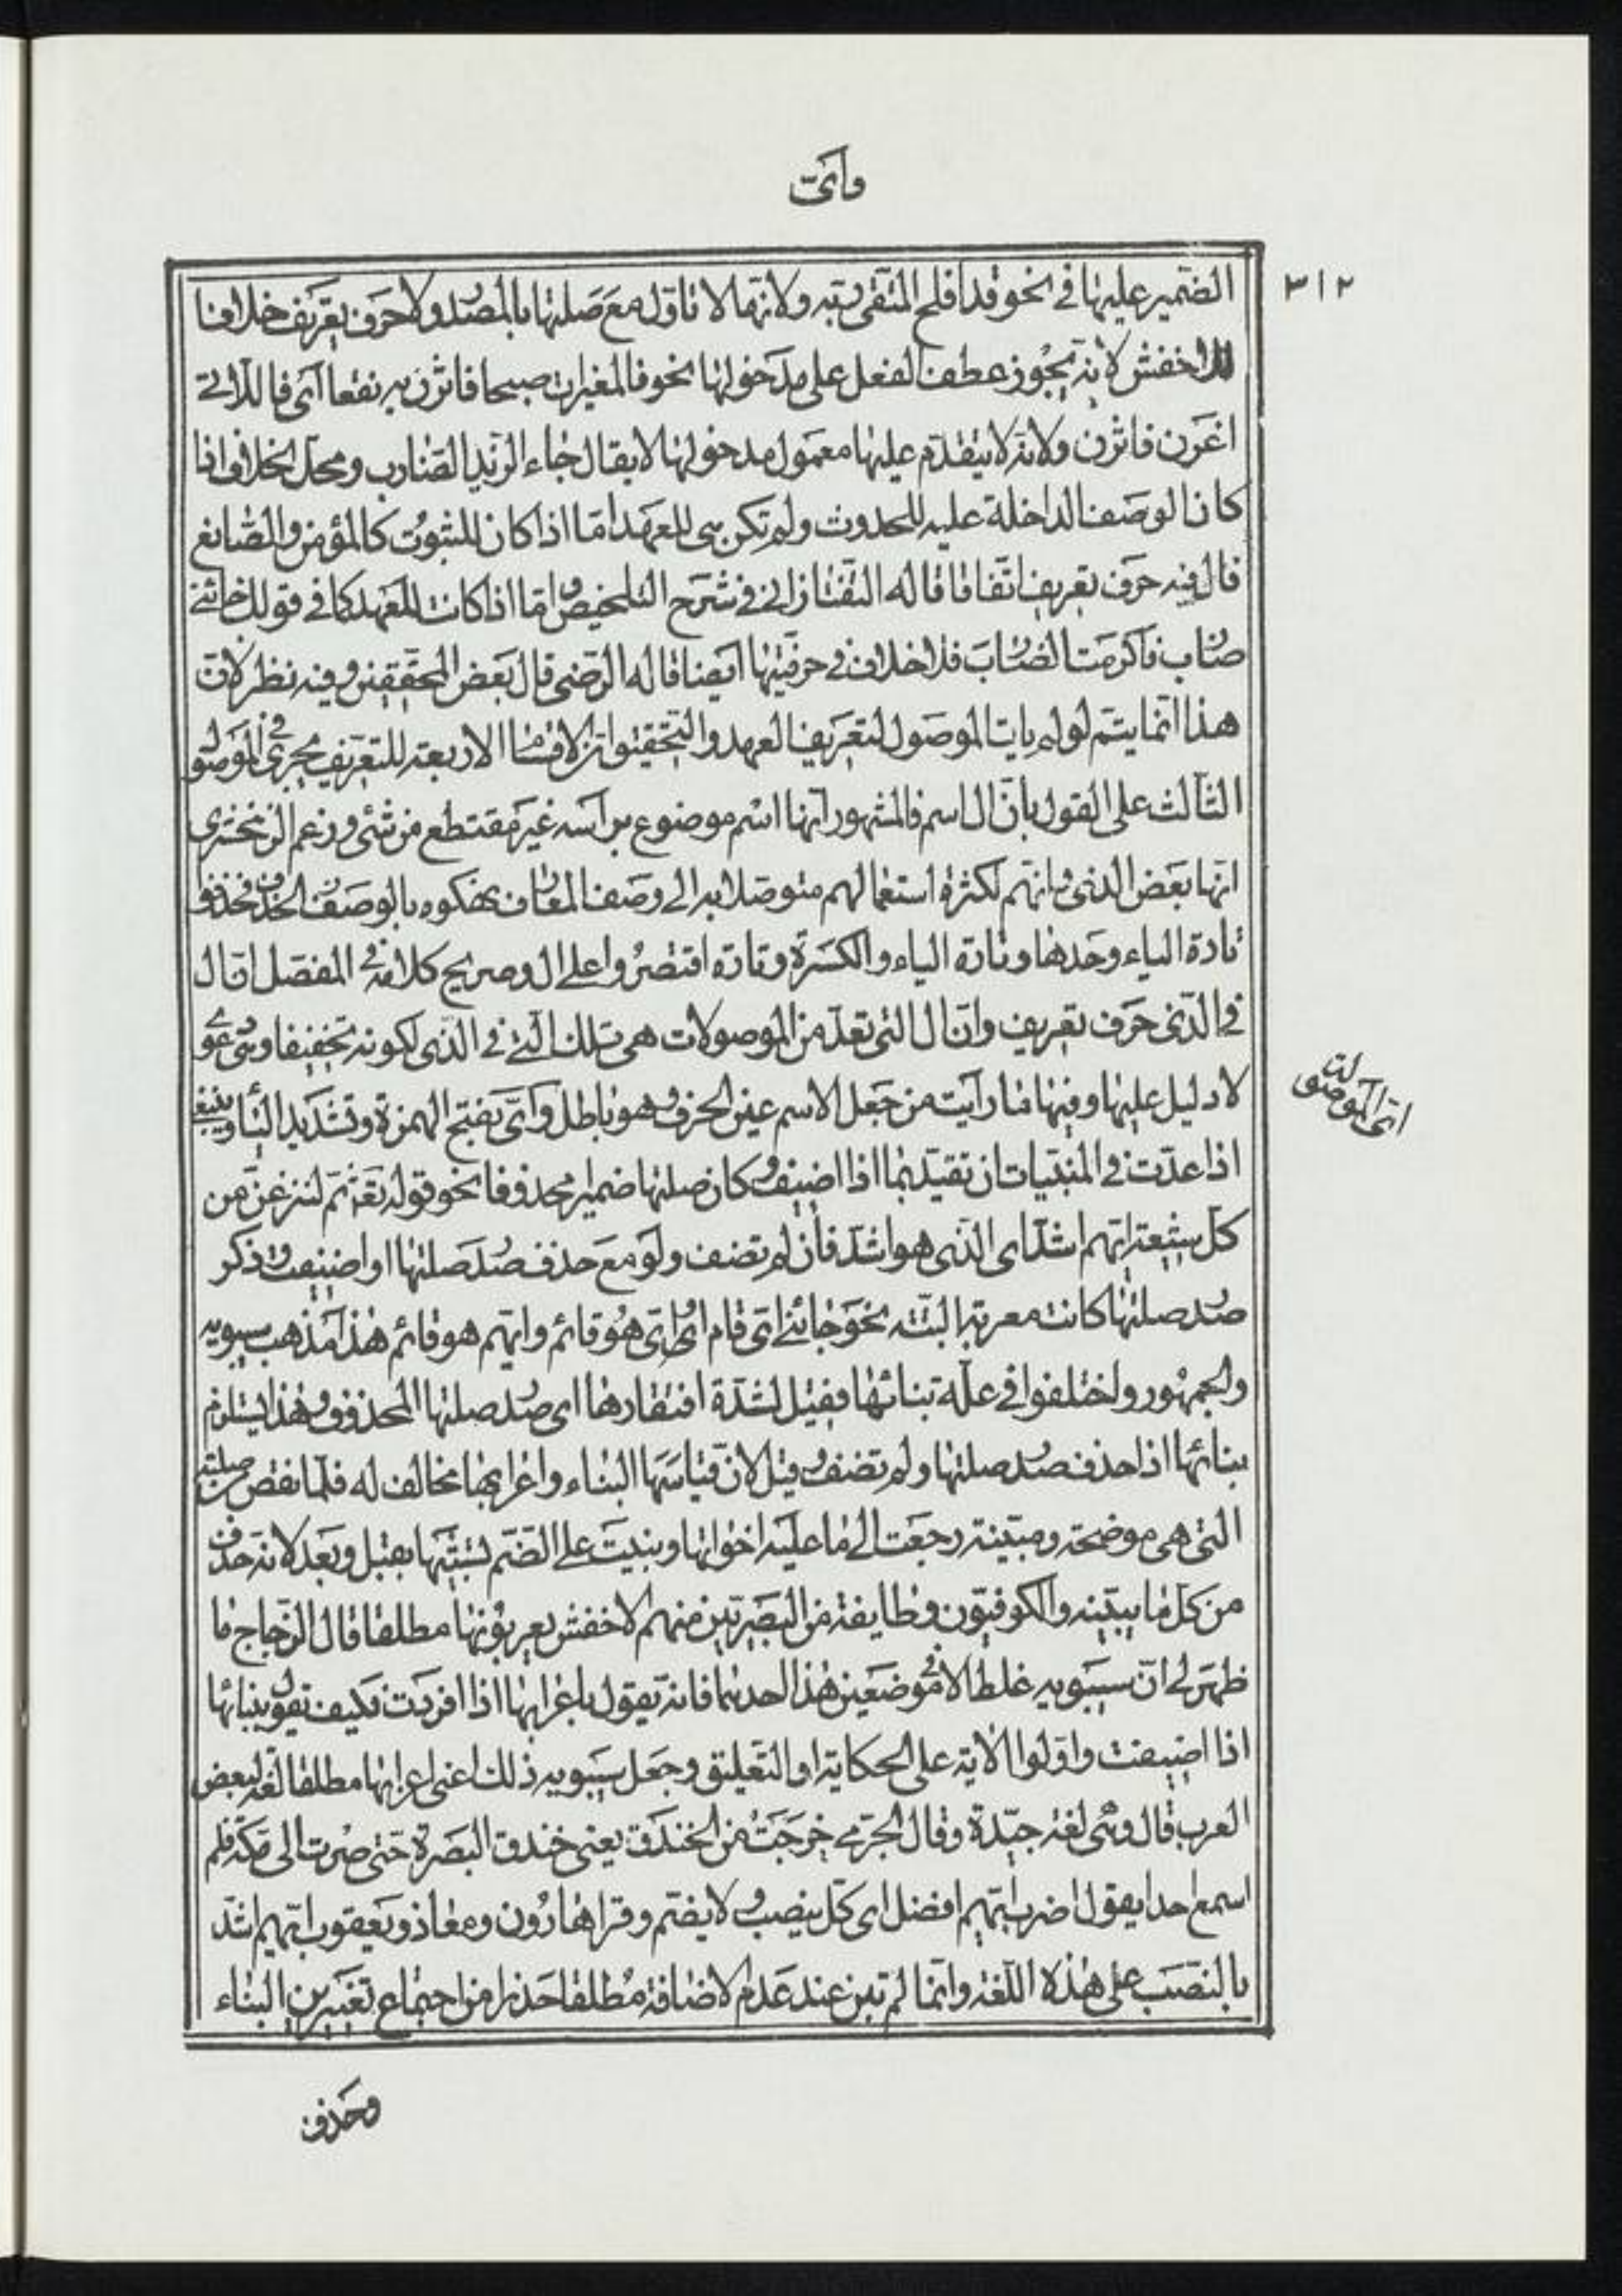 وأىّ
٣١٢
الضمير عليها في نحو قد افلح المتقى ربه ولانها لا تاول مع صلتها بالمصدر ولا حرف تعريف خلافا
للاخفش لانه يجوز عطف الفعل على مدخولها نحو فالمغيرات صبحا فاثرن به نقعا اى فاللاتى
اغرن فاثرن ولانه لا يتقدم عليها معمول مدخولها لا يقال جاء الزيد الضارب ومحل الخلاف اذا
كان الوصف الداخلة عليه للحدوث ولم تكن هى للعهد اما اذا كان للثبوت كالمؤمن والصانع
فال فيه حرف تعريف اتفاقا قاله التفتازانى فى شرح التلخيص واما اذا كانت للعهد كما فى قولك جائنى
ضارب فاكرمت الضارب فلا خلاف فى حرفيتها ايضا قاله الرضى قال بعض المحققين وفيه نظر لان
هذا انما يتم لو لم يات الموصول لتعريف العهد والتحقيق ان الاقسام الاربعة للتعريف يجرى فى الموصول
الثالث على القول بان ال اسم فالمشهور انها اسم موضوع براسه غير مقتطع من شئ وزعم الزمخشرى
انها بعض الذى وانهم لكثرة استعمالهم متوصلا به الى وصف المعارف نهكوه بالوصف الحذف فحذفوا
تارة الياء وحدها وتارة الياء والكسرة وتارة اقتصروا على ال وصريح كلامه فى المفصل ان ال
فى الذى حرف تعريف وان ال التى تعد من الموصولات هى تلك التى فى الذى لكونه تخفيفا وهى دعوى
لا دليل عليها وفيها ما رايت من جعل الاسم عين الحرف وهو باطل واىّ بفتح الهمزة وتشديد الياء وينبغى
اذا عدت فى المبنيات ان تقيد بما اذا اضيفت وكان صدر صلتها ضمير محذوفا نحو قوله تع ثم لننزعن من
كل شيعة ايهم اشد اى الذى هو اشد فان لم تضف ولو مع حذف صدر صلتها او اضيفت وذكر
صدر صلتها كانت معربة البتة نحو جائنى اى قام او اى هو قائم وايهم هو قائم هذا مذهب سيبويه
والجمهور واختلفوا فى علة بنائها فقيل لشدة افتقارها اى صدر صلتها المحذوف وهذا يستلزم
بنائها اذا حذف صدر صلتها ولم تضف وقيل لان قياسها البناء واعرابها مخالف له فلما نقص من صلتها
التى هى موضحة ومبينة رجعت الى ما عليه اخواتها وبنيت على الضم لشبهها بقبل وبعد لانه حذف
من كل ما يبينه والكوفيون وطايفة من البصريين منهم الاخفش يعربونها مطلقا قال الزجاج ما
ظهر لى ان سيبويه غلط الا فى موضعين هذا احدهما فانه يقول باعرابها اذا افردت فكيف يقول ببنائها
اذا اضيفت واولوا الاية على الحكاية او التعليق وجعل سيبويه ذلك اعنى اعرابها مطلقا لغة لبعض
العرب قال وهى لغة جيدة وقال الجرمى خرجت من الخندق يعنى خندق البصرة حتى صرت الى مكة فلم
اسمع احدا يقول اضرب ايهم افضل اى كل ينصب ولا يضم وقرا هارون ومعاذ ويعقوب ايهم اشد
بالنصب على هذه اللغة وانما لم تبن عند عدم الاضافة مطلقا حذرا من اجتماع تغييرين البناء
اى الموصولة
وحذف